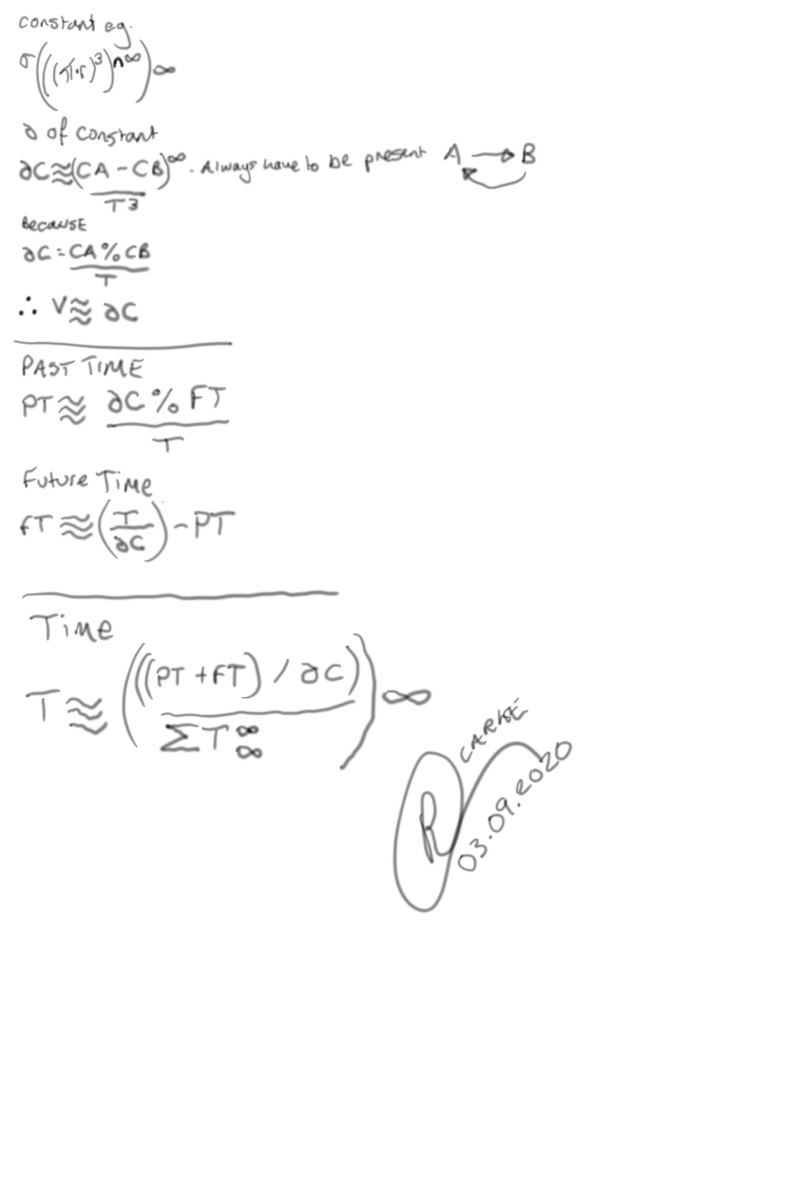 constant eg.
σ(((π·r)³)ⁿ^∞)∞
∂ of constant
∂C≋(CA - CB)^∞. Always have to be present A → B
T³
BECAUSE
∂C = CA % CB
T
∴ V ≋ ∂C
PAST TIME
PT ≋ ∂C % FT
T
Future Time
FT ≋ (T/∂C) - PT
Time
T ≋ (((PT + FT) / ∂C))∞
ΣT ∞ ∞
R
03.09.2020